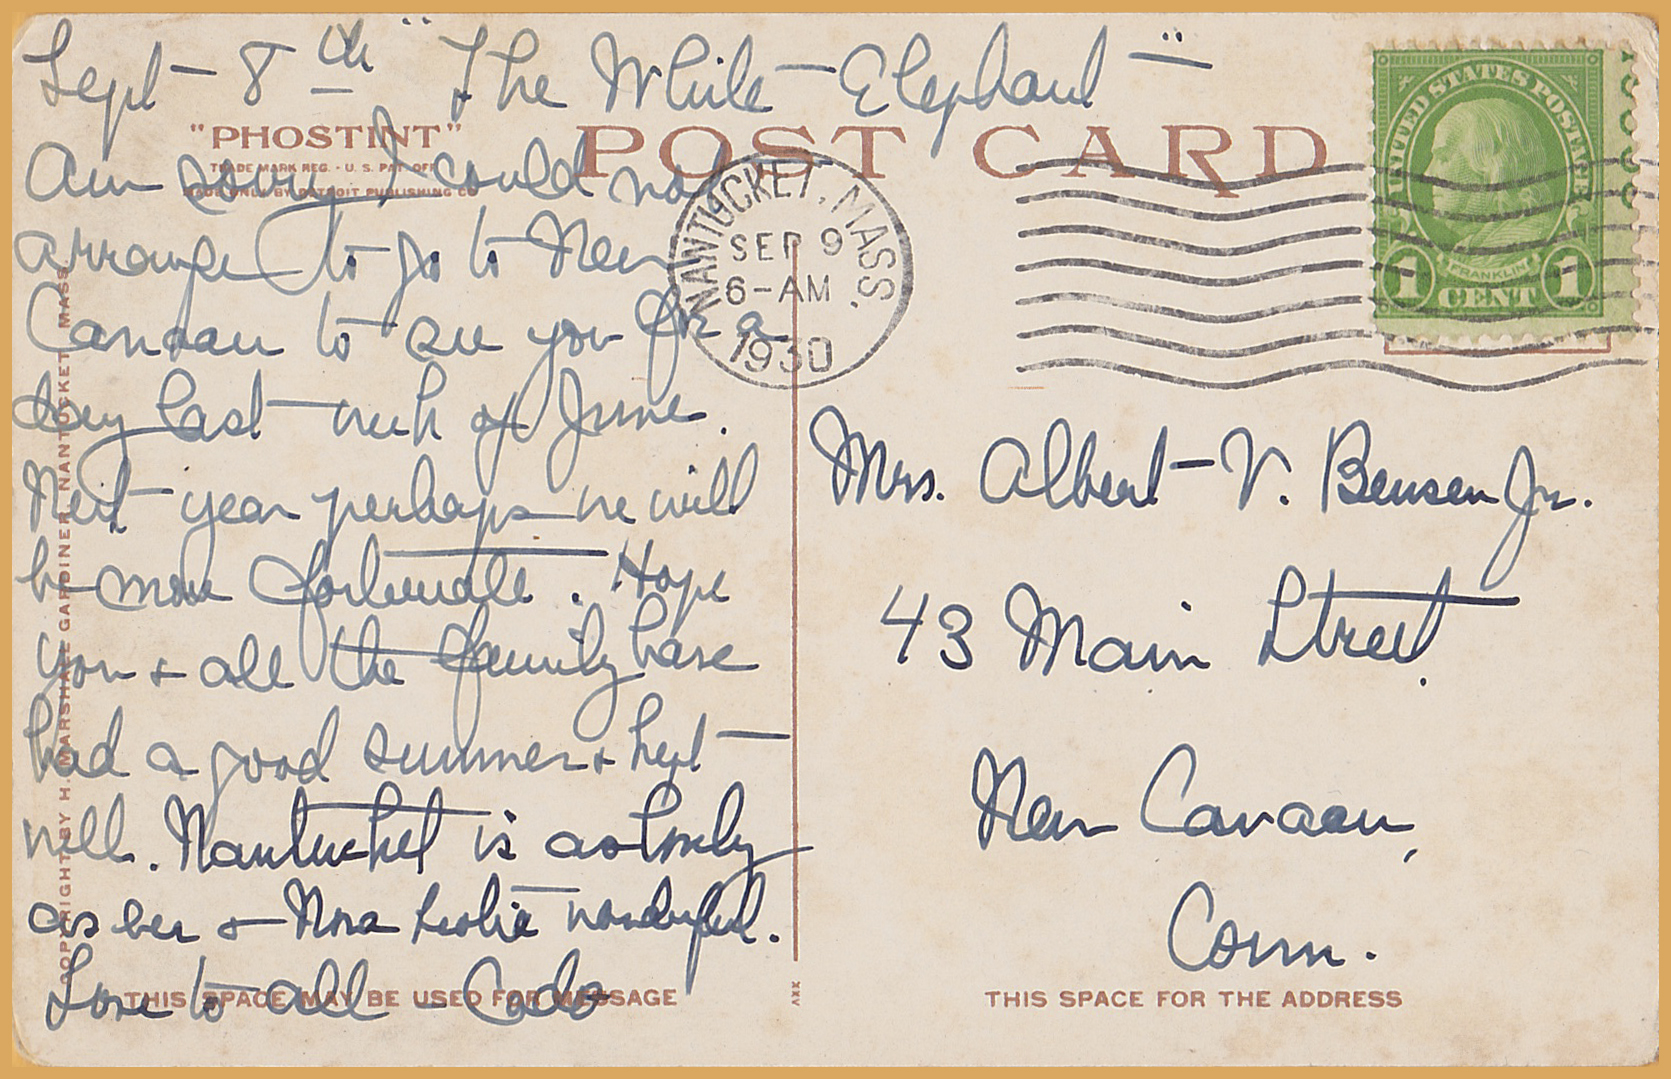 Sept - 8th "The White - Elephant"
"PHOSTINT"
TRADE MARK REG. · U. S. PAT. OFF.
MADE ONLY BY DETROIT PUBLISHING CO.
POST CARD
Am sorry I could not
arrange to go to New
Canaan to see you for a
day last week of June.
Next year perhaps we will
be more fortunate. Hope
you + all the family have
had a good summer + kept
well. Nantucket is as lovely
as ever + Nora Leslie wonderful.
Love to all -
THIS SPACE MAY BE USED FOR MESSAGE
COPYRIGHT BY H. MARSHALL GARDINER, NANTUCKET, MASS.
NANTUCKET, MASS.
SEP 9
6-AM
1930
UNITED STATES POSTAGE
FRANKLIN
1 CENT 1
Mrs. Albert V. Bensen Jr.
43 Main Street.
New Canaan,
Conn.
THIS SPACE FOR THE ADDRESS